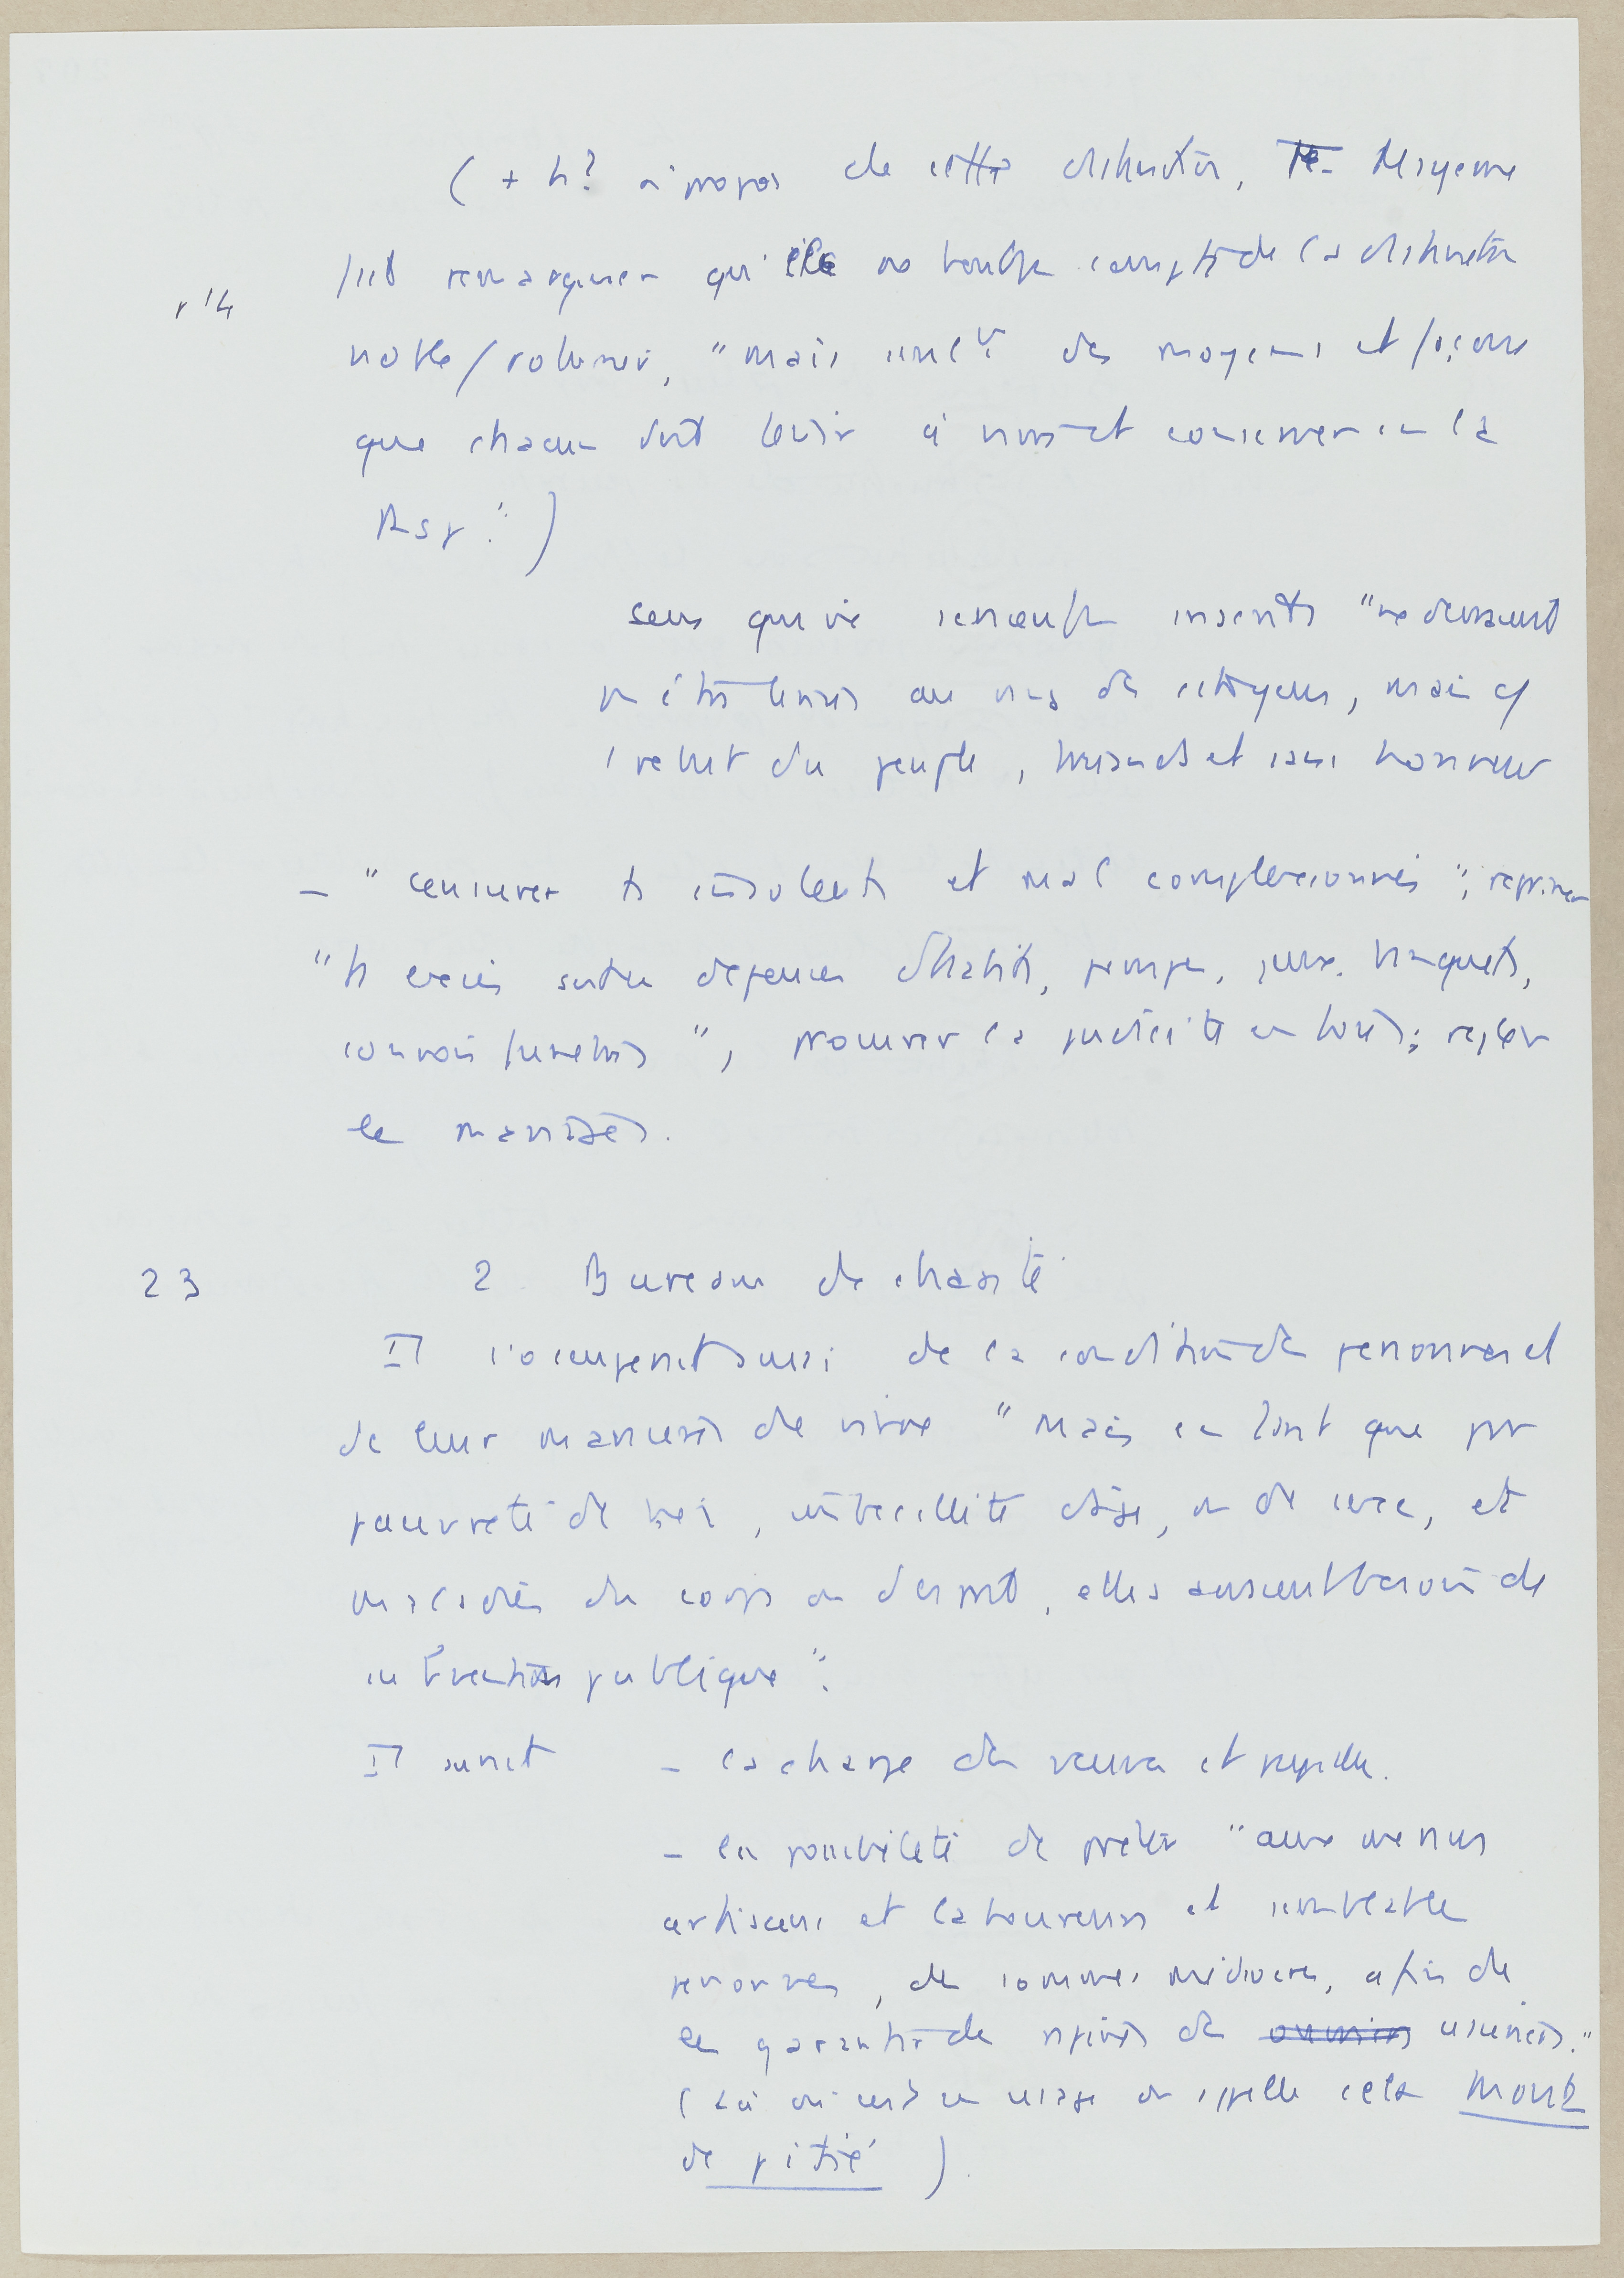 ( + h? à propos de cette distinction, Mayerne
fait remarquer qu'elle ne touche compte de la distinction
p 14
noble/roturier, "mais seulᵗ des moyens et façons
que chacun doit tenir à vivre et converser en la
Resp".)
ceux qui ne seront pas inscrits "ne devraient
pr être tenus au rang de citoyens, mais cô
rebut du peuple, et sans honneur
- "censurer ts insolents et mal complexionnés"; réprimer
"ts excès sur les dépenses d'habits, pompes, jeux, banquets,
convois funèbres", procurer la pudicité en tous; régler
les mariages.
23
2 Bureau de charité
Il s'occuperait aussi de la condition des personnes et
de leur manière de vivre "mais en tant que par
pauvreté de biens, imbécillité d'âge, ou de sexe, et
maladies du corps ou d'esprit, elles auraient besoin de
intervention publique".
Il aurait - la charge des veuves et pupilles.
- la possibilité de prêter "aux menus
artisans et laboureurs et semblables
personnes, des sommes médiocres, afin de
les garantir de rapines des ouvriers usuriers."
(Là où c'est en usage on appelle cela Monts
de pitié)